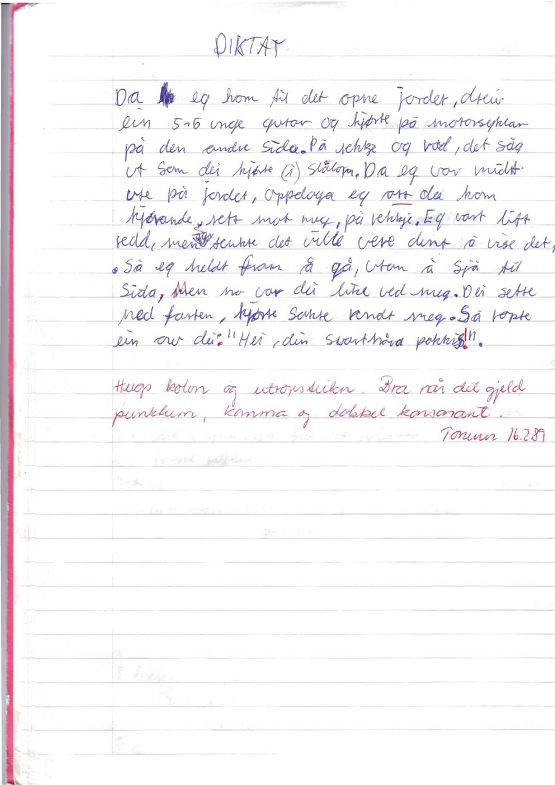 DIKTAT
Da eg kom til det opne jordet, dreiv
ein 5-6 unge gutar og kjørte på motorsyklar
på den andre sida. På rekkje og rad, det såg
ut som dei kjørte (i) slålom. Da eg var midt
ute på jordet, oppdaga eg att dei kom
kjørande, rett mot meg, på rekkje. Eg vart litt
redd, men tenkte det ville vere dumt å vise det,
. Så eg heldt fram å gå, utan å sjå til
Sida, Men no var dei like ved meg. Dei sette
ned farten, kjørte sakte rundt meg. Så ropte
ein av dei: "Hei, din svarthåra pakkis!".
Hugs kolon og utropsteikn. Bra når det gjeld
punktum, komma og dobbel konsonant.
Torunn 16.2.89